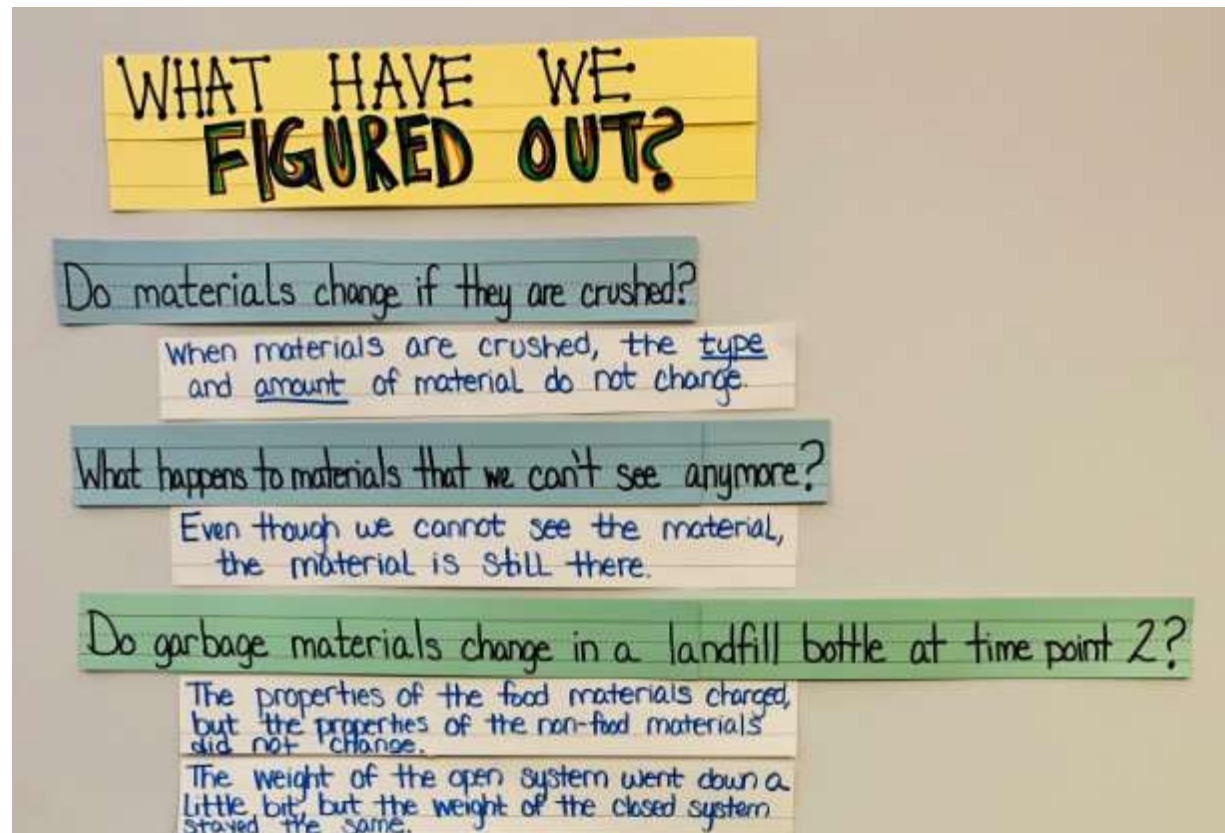 WHAT HAVE WE
FIGURED OUT?
Do materials change if they are crushed?
When materials are crushed, the type
and amount of material do not change.
What happens to materials that we can't see anymore?
Even though we cannot see the material,
the material is still there.
Do garbage materials change in a landfill bottle at time point 2?
The properties of the food materials changed,
but the properties of the non-food materials
did not change.
The weight of the open system went down a
little bit, but the weight of the closed system
stayed the same.